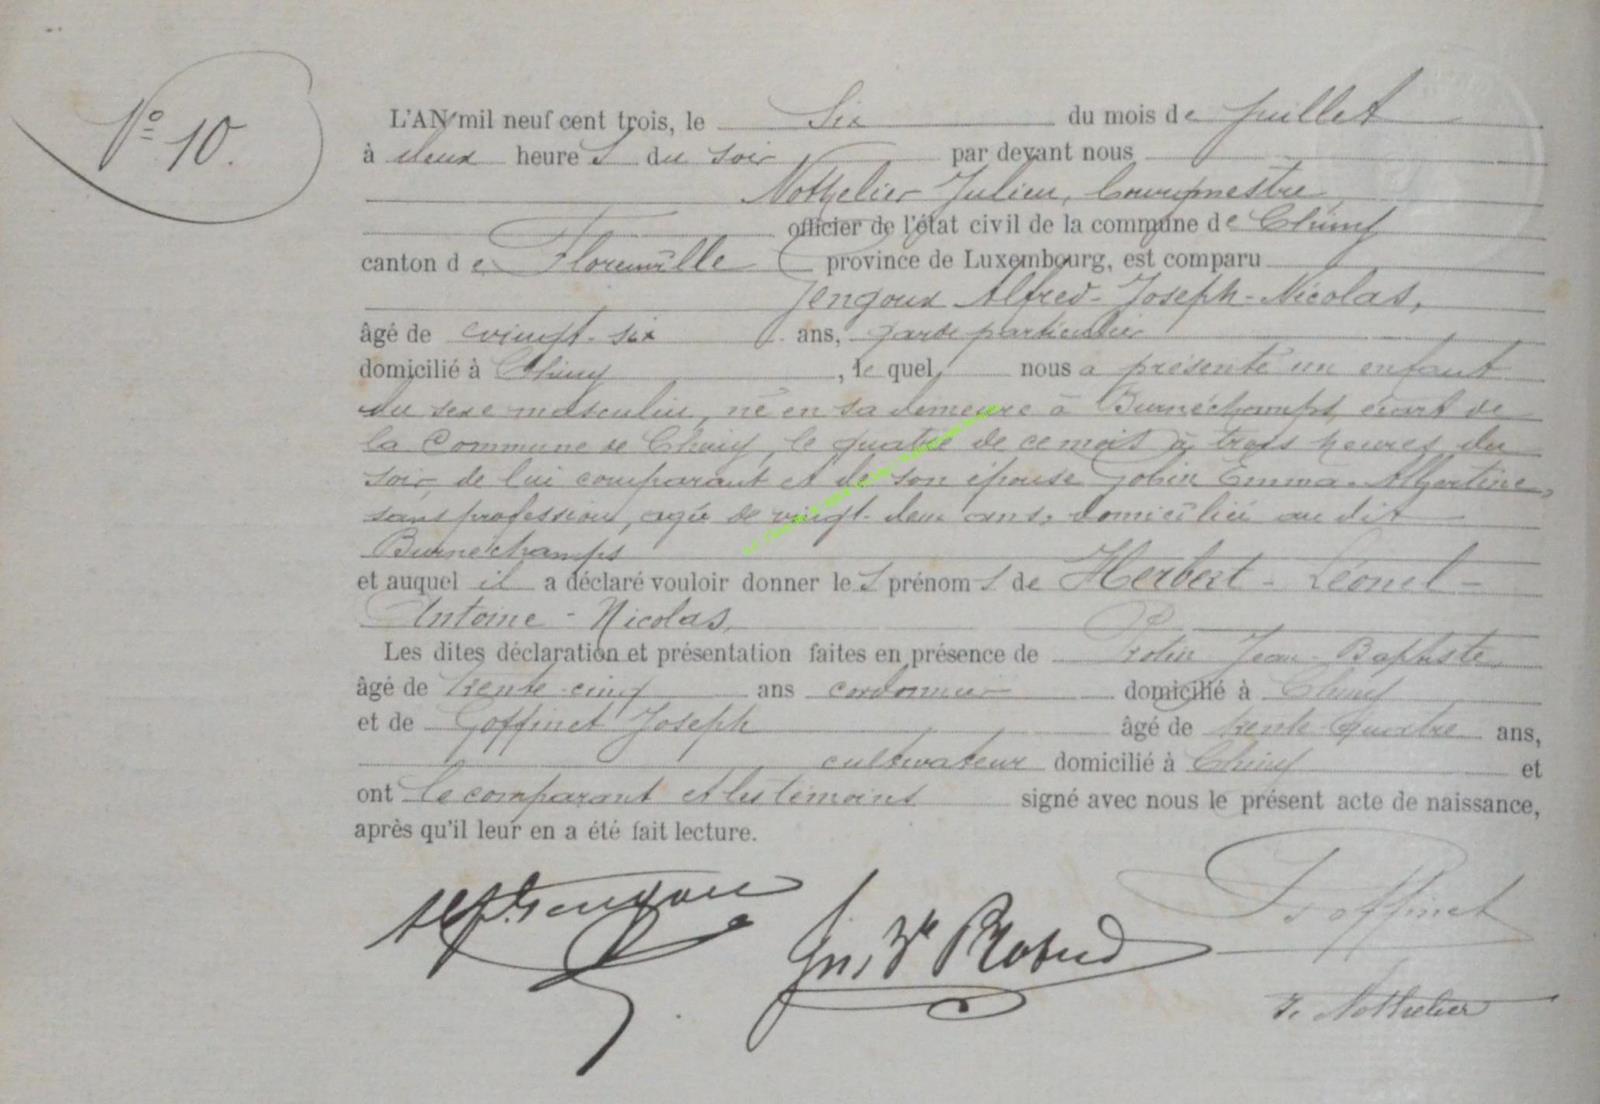 N° 10.
L'AN mil neuf cent trois, le Six du mois de Juillet
à deux heures du soir par devant nous
Nothelier Julien, bourgmestre,
officier de l'état civil de la commune de Chiny
canton de Florenville province de Luxembourg, est comparu
Jengoux Alfred-Joseph-Nicolas,
âgé de vingt-six ans, garde particulier
domicilié à Chiny, le quel, nous a présenté un enfant
du sexe masculin, né en sa demeure à Burnéchamps, écart de
la Commune de Chiny, le quatre de ce mois à trois heures du
soir, de lui comparant et de son épouse Gobin Emma-Albertine,
sans profession, agée de vingt-deux ans, domiciliée au dit
Burnéchamps
et auquel il a déclaré vouloir donner les prénoms de Herbert-Léonel-
Antoine-Nicolas,
Les dites déclaration et présentation faites en présence de Jean-Baptiste,
âgé de trente-cinq ans cordonnier domicilié à Chiny
et de Goffinet Joseph âgé de trente-quatre ans,
cultivateur domicilié à Chiny et
ont le comparant et les témoins signé avec nous le présent acte de naissance,
après qu'il leur en a été fait lecture.
J Goffinet
J. Nothelier